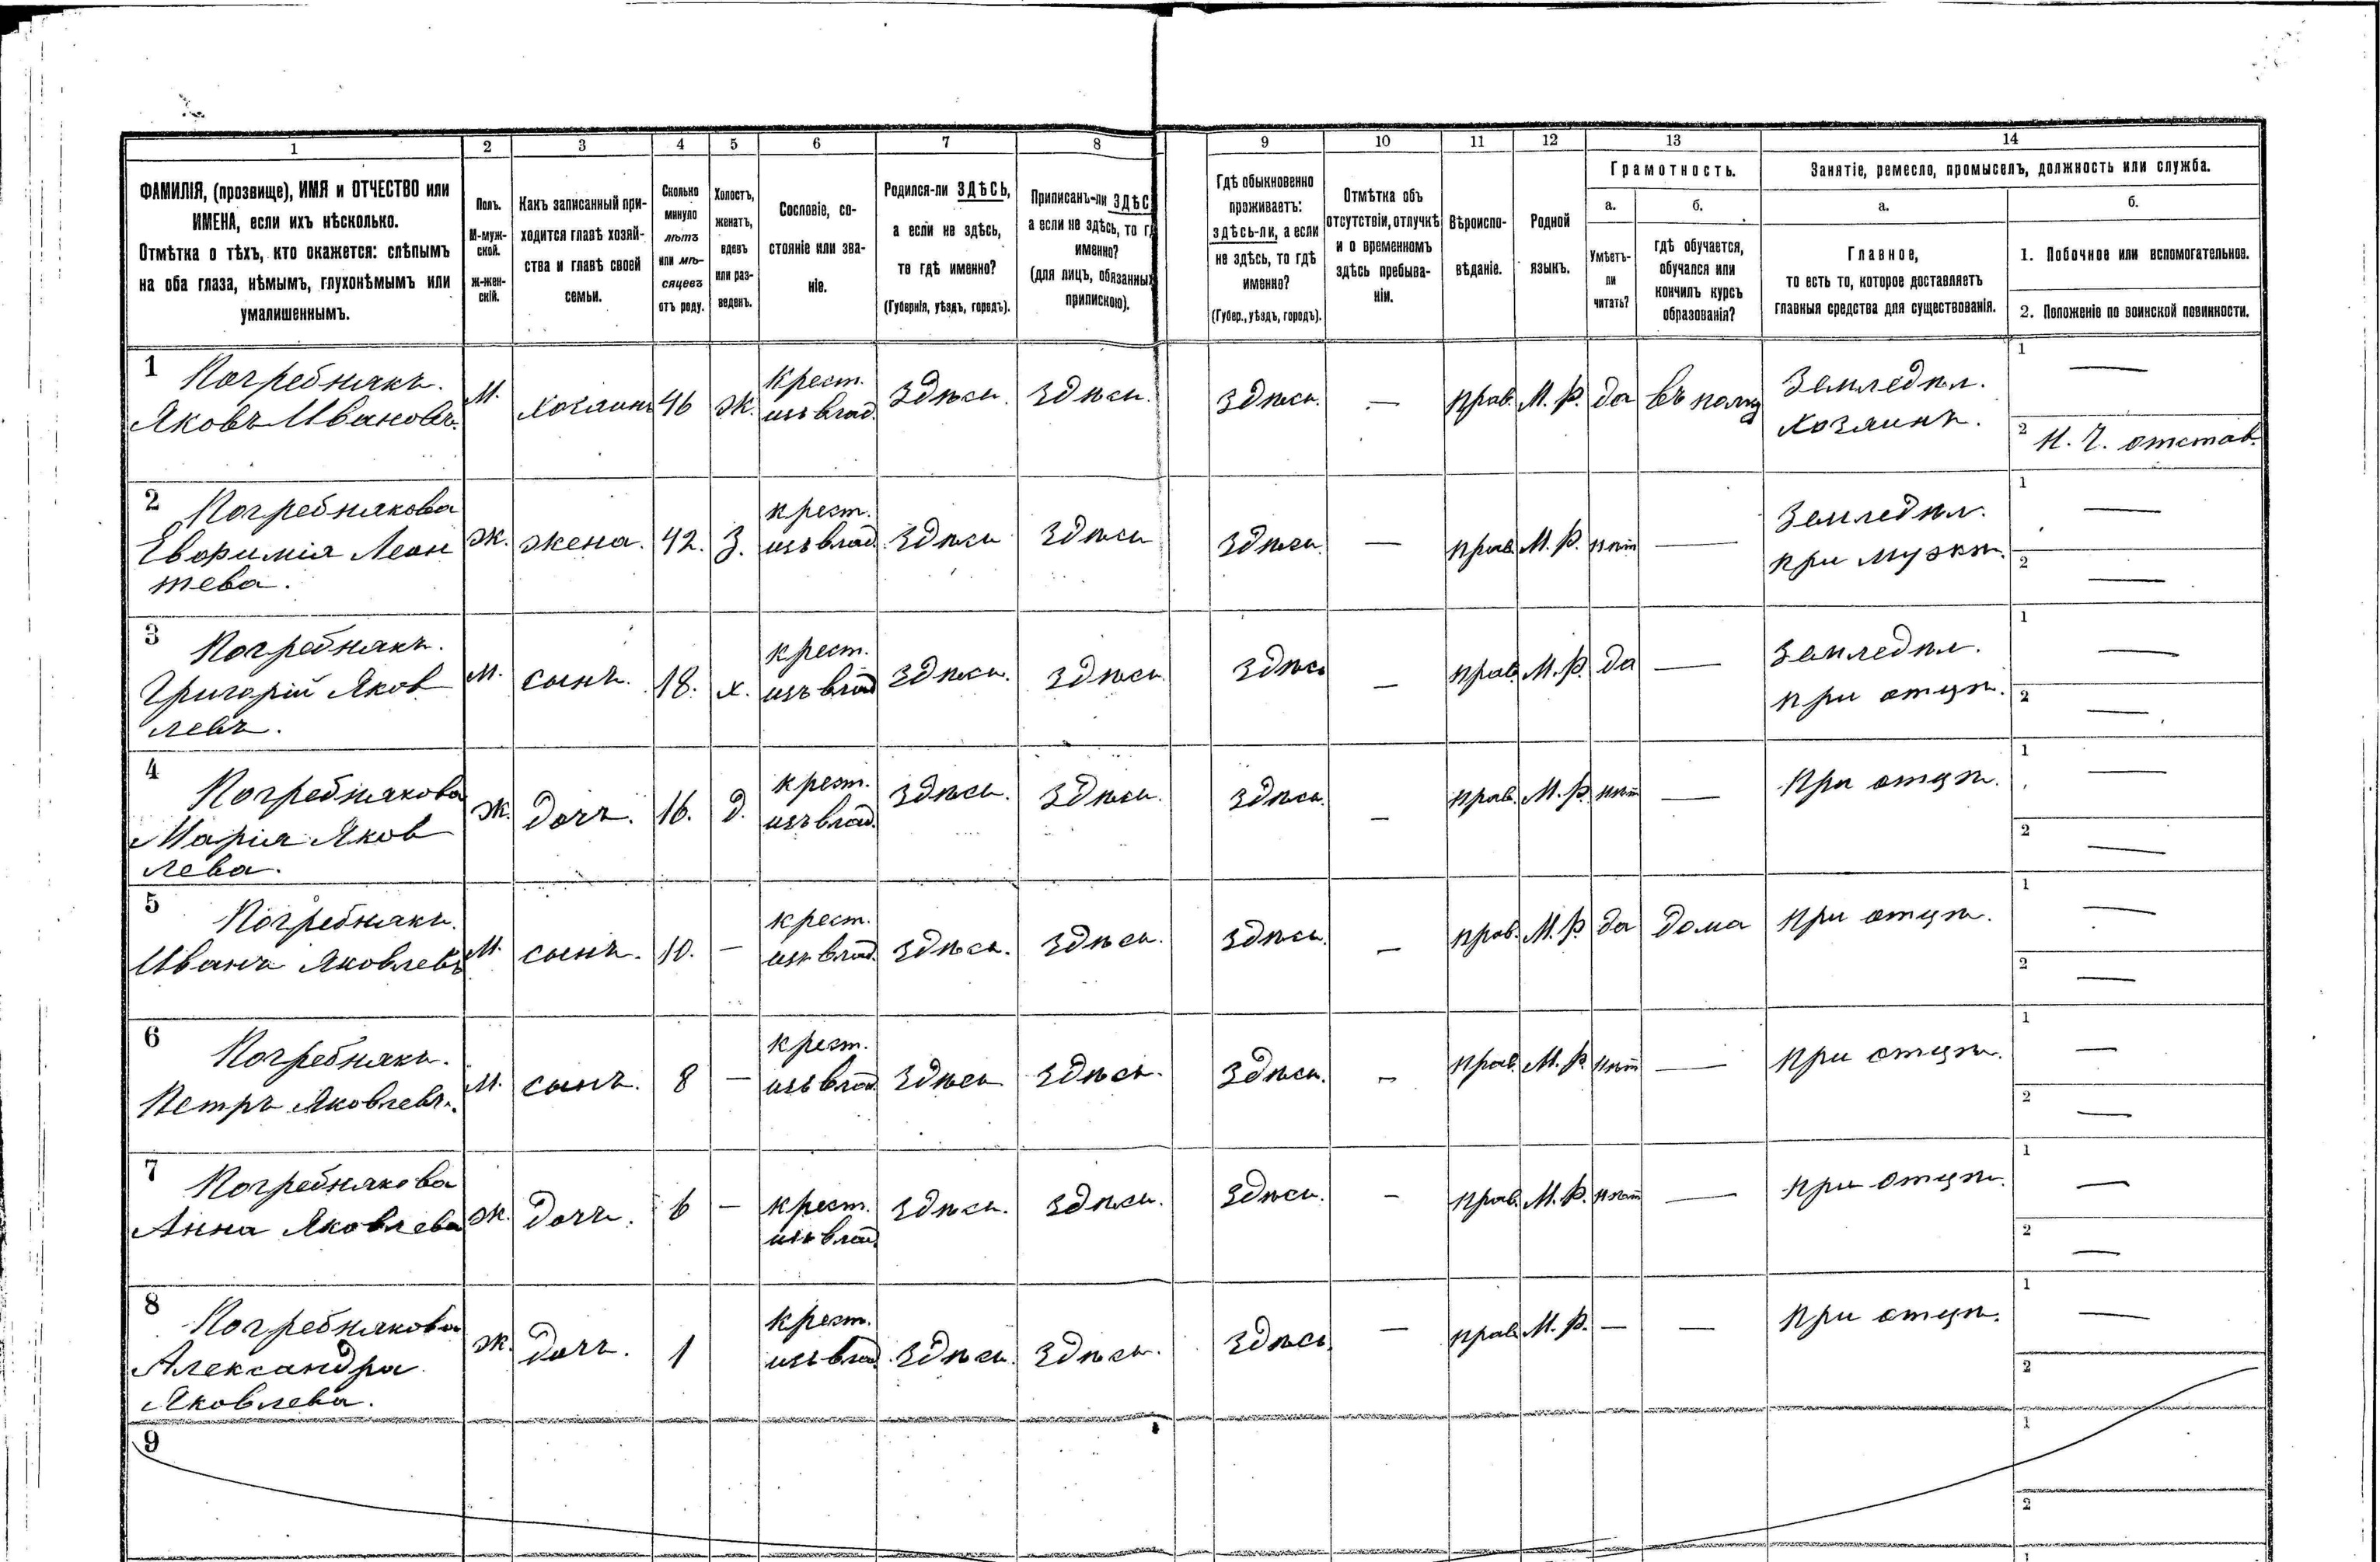 1 2 3 4 5 6 7 8 9 10 11 12 13 14
ФАМИЛІЯ, (прозвище), ИМЯ и ОТЧЕСТВО или
ИМЕНА, если ихъ нѣсколько.
Отмѣтка о тѣхъ, кто окажется: слѣпымъ
на оба глаза, нѣмымъ, глухонѣмымъ или
умалишеннымъ.
Полъ.
М-муж-
ской.
Ж-жен-
скій.
Какъ записанный при-
ходится главѣ хозяй-
ства и главѣ своей
семьи.
Сколько
минуло
лѣтъ
или мѣ-
сяцевъ
отъ роду.
Холостъ,
женатъ,
вдовъ
или раз-
веденъ.
Сословіе, со-
стояніе или зва-
ніе.
Родился-ли ЗДѢСЬ,
а если не здѣсь,
то гдѣ именно?
(Губернія, уѣздъ, городъ).
Приписанъ-ли ЗДѢС
а если не здѣсь, то г
именно?
(для лицъ, обязанны
припискою).
Гдѣ обыкновенно
проживаетъ:
здѣсь-ли, а если
не здѣсь, то гдѣ
именно?
(Губер., уѣздъ, городъ).
Отмѣтка объ
отсутствіи, отлучкѣ
и о временномъ
здѣсь пребыва-
ніи.
Вѣроиспо-
вѣданіе.
Родной
языкъ.
Грамотность.
а.
Умѣетъ-
ли
читать?
б.
гдѣ обучается,
обучался или
кончилъ курсъ
образованія?
Занятіе, ремесло, промыселъ, должность или служба.
а.
Главное,
то есть то, которое доставляетъ
главныя средства для существованія.
б.
1. Побочное или вспомогательное.
2. Положеніе по воинской повинности.
1 Погребнякъ.
Яковъ Ивановъ.
М.
хозяинъ
46
ж.
Крест.
изъ влад.
Здѣсь.
Здѣсь.
Здѣсь.
—
прав.
М. Р.
да
Въ полку
Земледѣл.
Хозяинъ.
1 —
2 Н. Ч. отстав.
2 Погребнякова
Евфимія Леон
тева.
Ж.
жена.
42.
З.
крест.
изъ влад.
Здѣсь
Здѣсь
Здѣсь.
—
прав.
М. Р.
нѣт
—
Земледѣл.
при мужѣ.
1 —
2 —
3 Погребнякъ.
Григорій Яков
левъ.
М.
сынъ.
18.
х.
крест.
изъ влад
Здѣсь.
Здѣсь.
Здѣсь
—
прав.
М. Р.
да
—
Земледѣл.
при отцѣ.
1 —
2 —
4 Погребнякова
Марія Яков
лева.
Ж.
Дочь.
16.
Д.
крест.
изъ влад.
Здѣсь.
Здѣсь.
Здѣсь.
—
прав.
М. Р.
нѣт
—
При отцѣ.
1 —
2 —
5 Погребнякъ.
Иванъ Яковлевъ
М.
сынъ.
10.
—
крест.
изъ влад.
Здѣсь.
Здѣсь.
Здѣсь.
—
прав.
М. Р.
да
Дома
при отцѣ.
1 —
2 —
6 Погребнякъ.
Петръ Яковлевъ.
М.
сынъ.
8
—
крест.
изъ влад.
Здѣсь
Здѣсь.
Здѣсь.
—
прав.
М. Р.
нѣт
—
при отцѣ.
1 —
2 —
7 Погребнякова
Анна Яковлева
Ж.
Дочь.
6
—
крест.
изъ влад.
Здѣсь.
Здѣсь.
Здѣсь.
—
прав.
М. Р.
нѣт
—
при отцѣ.
1 —
2 —
8 Погребнякова
Александра
Яковлева.
Ж.
Дочь.
1
крест.
изъ влад.
Здѣсь.
Здѣсь.
Здѣсь.
—
прав.
М. Р.
—
—
при отцѣ.
1 —
2
9
1
2
1